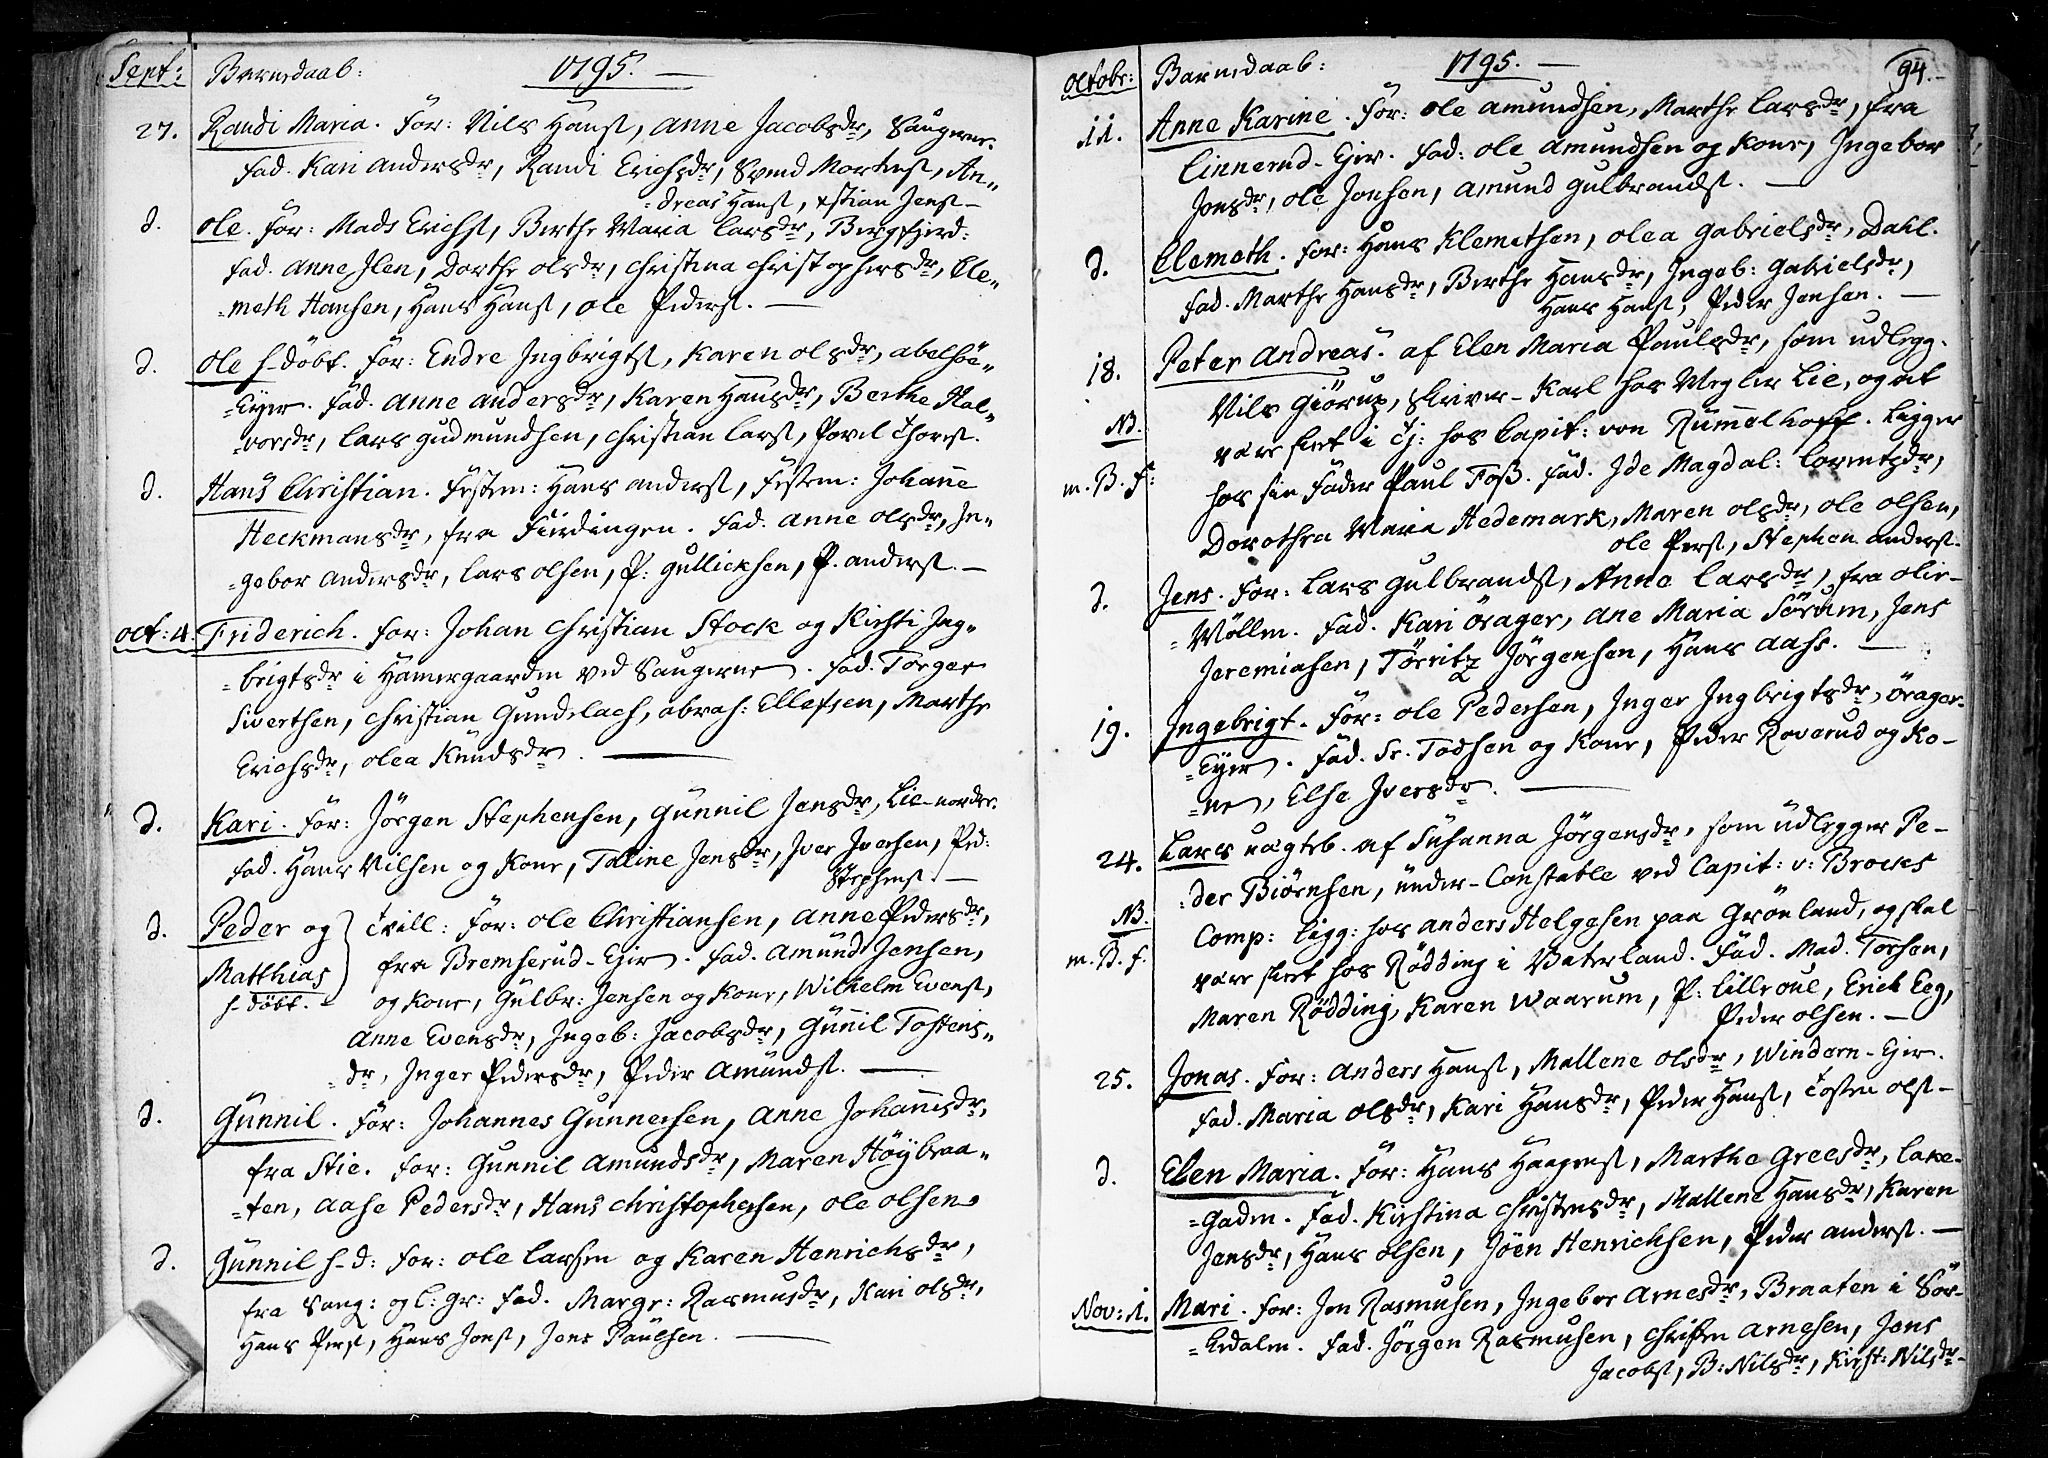 Sept: Barnedaab: 1795. —
27. Randi Maria. For: Nils Hans̄, Anne Jacobsdr, Saugerne.
Fad. Kari Andersdr, Randi Erichsdr, Svend Mortens̄, An„
„dreas Hans̄, xstian Jens̄ —
d. Ole. For: Mads Erichs̄, Berthe Maria Larsdr, Bergsfjerd:
Fad. Anne Ilen, Dorthe Olsdr, Christina Christophersdr, Cle„
„meth Hansen, Hans Hans̄, Ole Peders̄. —
d. Ole h-döbt. For: Endre Ingbrigts̄, Karen Olsdr, Abelsöe„
„Eyer. Fad. Anne Andersdr, Karen Hansdr, Berthe Hal„
vorsdr, Lars Gudmundsen, Christian Lars̄, Povel Thors̄.
d. Hans Christian. Festem: Hans Anders̄, Festem: Johanne
Heckmansdr, fra Fierdingen. Fad. Anne Olsdr, In„
„gebor Andersdr, Lars Olsen, P: Gullicksen, P. Anders̄. —
Oct: 4. Friderich. For: Johan Christian Stock og Kirsti Ing„
„brigtsdr i Hamergaarden ved Saugerne. Fad. Torger
Siverthsen, Christian Gundelach, Abrah: Ellefsen, Marthe
Erichsdr, Olea Knudsdr. —
d. Kari. For: Jörgen Stephensen, Gunnil Jensdr, Lie-nordre.
Fad. Hans Nilsen og Kone, Talline Jensdr, Iver Iversen, Ped:
Stephens̄. —
d. Peder og Tvill: For: Ole Christiansen, Anne Pedersdr,
Matthias fra Bremserud-Ejer. Fad. Amund Jensen,
h-döbt. og Kone, Gulbr: Jensen og Kone, Wilhelm Evens̄,
Anne Evensdr, Ingeb: Jacobsdr, Gunnil Tostens„
„dr, Inger Pedersdr, Peder Amunds̄. —
d. Gunnil. For: Johannes Gunnersen, Anne Johannisdr,
fra Stie. For: Gunnil Amundsdr, Maren Höybraa„
„ten, Aase Pedersdr, Hans Christophersen, Ole Olsen
d. Gunnil h-d: For: Ole Larsen og Karen Henrichsdr,
fra Saug: og L: gr: Fad. Margr: Rasmusdr, Kari Olsdr,
Hans Pers̄, Hans Jons̄, Jens Paulsen. —
Octobr: Barnedaab: 1795. — 94.
11. Anne Karine. For: Ole Amundsen, Marthe Larsdr, fra
Linnerud-Ejer. Fad: Ole Amundsen og Kone, Ingebor
Jonsdr, Ole Jonsen, Amund Gulbrands̄. —
d. Clemeth. For: Hans Klemethsen, Olea Gabrielsdr, Dahl.
Fad. Marthe Hansdr, Berthe Hansdr, Ingeb: Gabrielsdr,
Hans Hans̄, Peder Jensen. —
18. Peter Andreas. af Elen Maria Paulsdr, som udlegg.
Nils Giörup, Skriver-Karl hos Megler Lie, og at
NB. være skeet i Tj: hos Capit: von Rummelhoff. Ligger
m. B. F: hos sin Fader Paul Foss. Fad. Ide Magdal: Lorentsdr,
Dorothea Maria Hedemark, Maren Olsdr, Ole Olsen,
Ole Pers̄, Stephen Anders̄.
d. Jens. For: Lars Gulbrands̄, Anne Larsdr, fra Olie-
„Möllen. Fad. Kari Örager, Ane Maria Sörum, Jens
Jeremiasen, Törritz Jörgensen, Hans Aahs. —
19. Ingebrigt. For: Ole Pedersen, Inger Ingbrigtsdr, Örager-
„Eyer. Fad. Sr. Todsen og Kone, Peder Roverud og Ko-
„ne, Else Iversdr. —
24. Lars uägteb. af Susanna Jörgensdr, som udlegger Pe-
„der Biörnsen, under-Constable ved Capit: v: Brocks
NB. Comp: Ligg: hos Anders Helgesen paa Grönland, og skal
m. B. f. være skeet hos Rödding i Vaterland. Fad. Mad. Torsen,
Maren Rödding, Karen Waarum, P: Lilleoue, Erick Eeg,
Peder Olsen. —
25. Jonas. For: Anders Hans̄, Mallene Olsdr, Windern-Ejer.
Fad. Maria Olsdr, Kari Hansdr, Peder Hans̄, Tosten Ols̄ —
d. Elen Maria. For: Hans Haagens̄, Marthe Greesdr, Lake-
„Gaden. Fad. Kirstina Christensdr, Mallene Hansdr, Karen
Jensdr, Hans Olsen, Jöen Henrichsen, Peder Anders̄. —
Nov: 1. Mari. For: Jon Rasmusen, Ingebor Arnesdr, Braaten i Sör-
„kedalen. Fad. Jörgen Rasmusen, Christen Arnesen, Jens
Jacobs̄, B: Nilsdr, Kirst: Nilsdr —